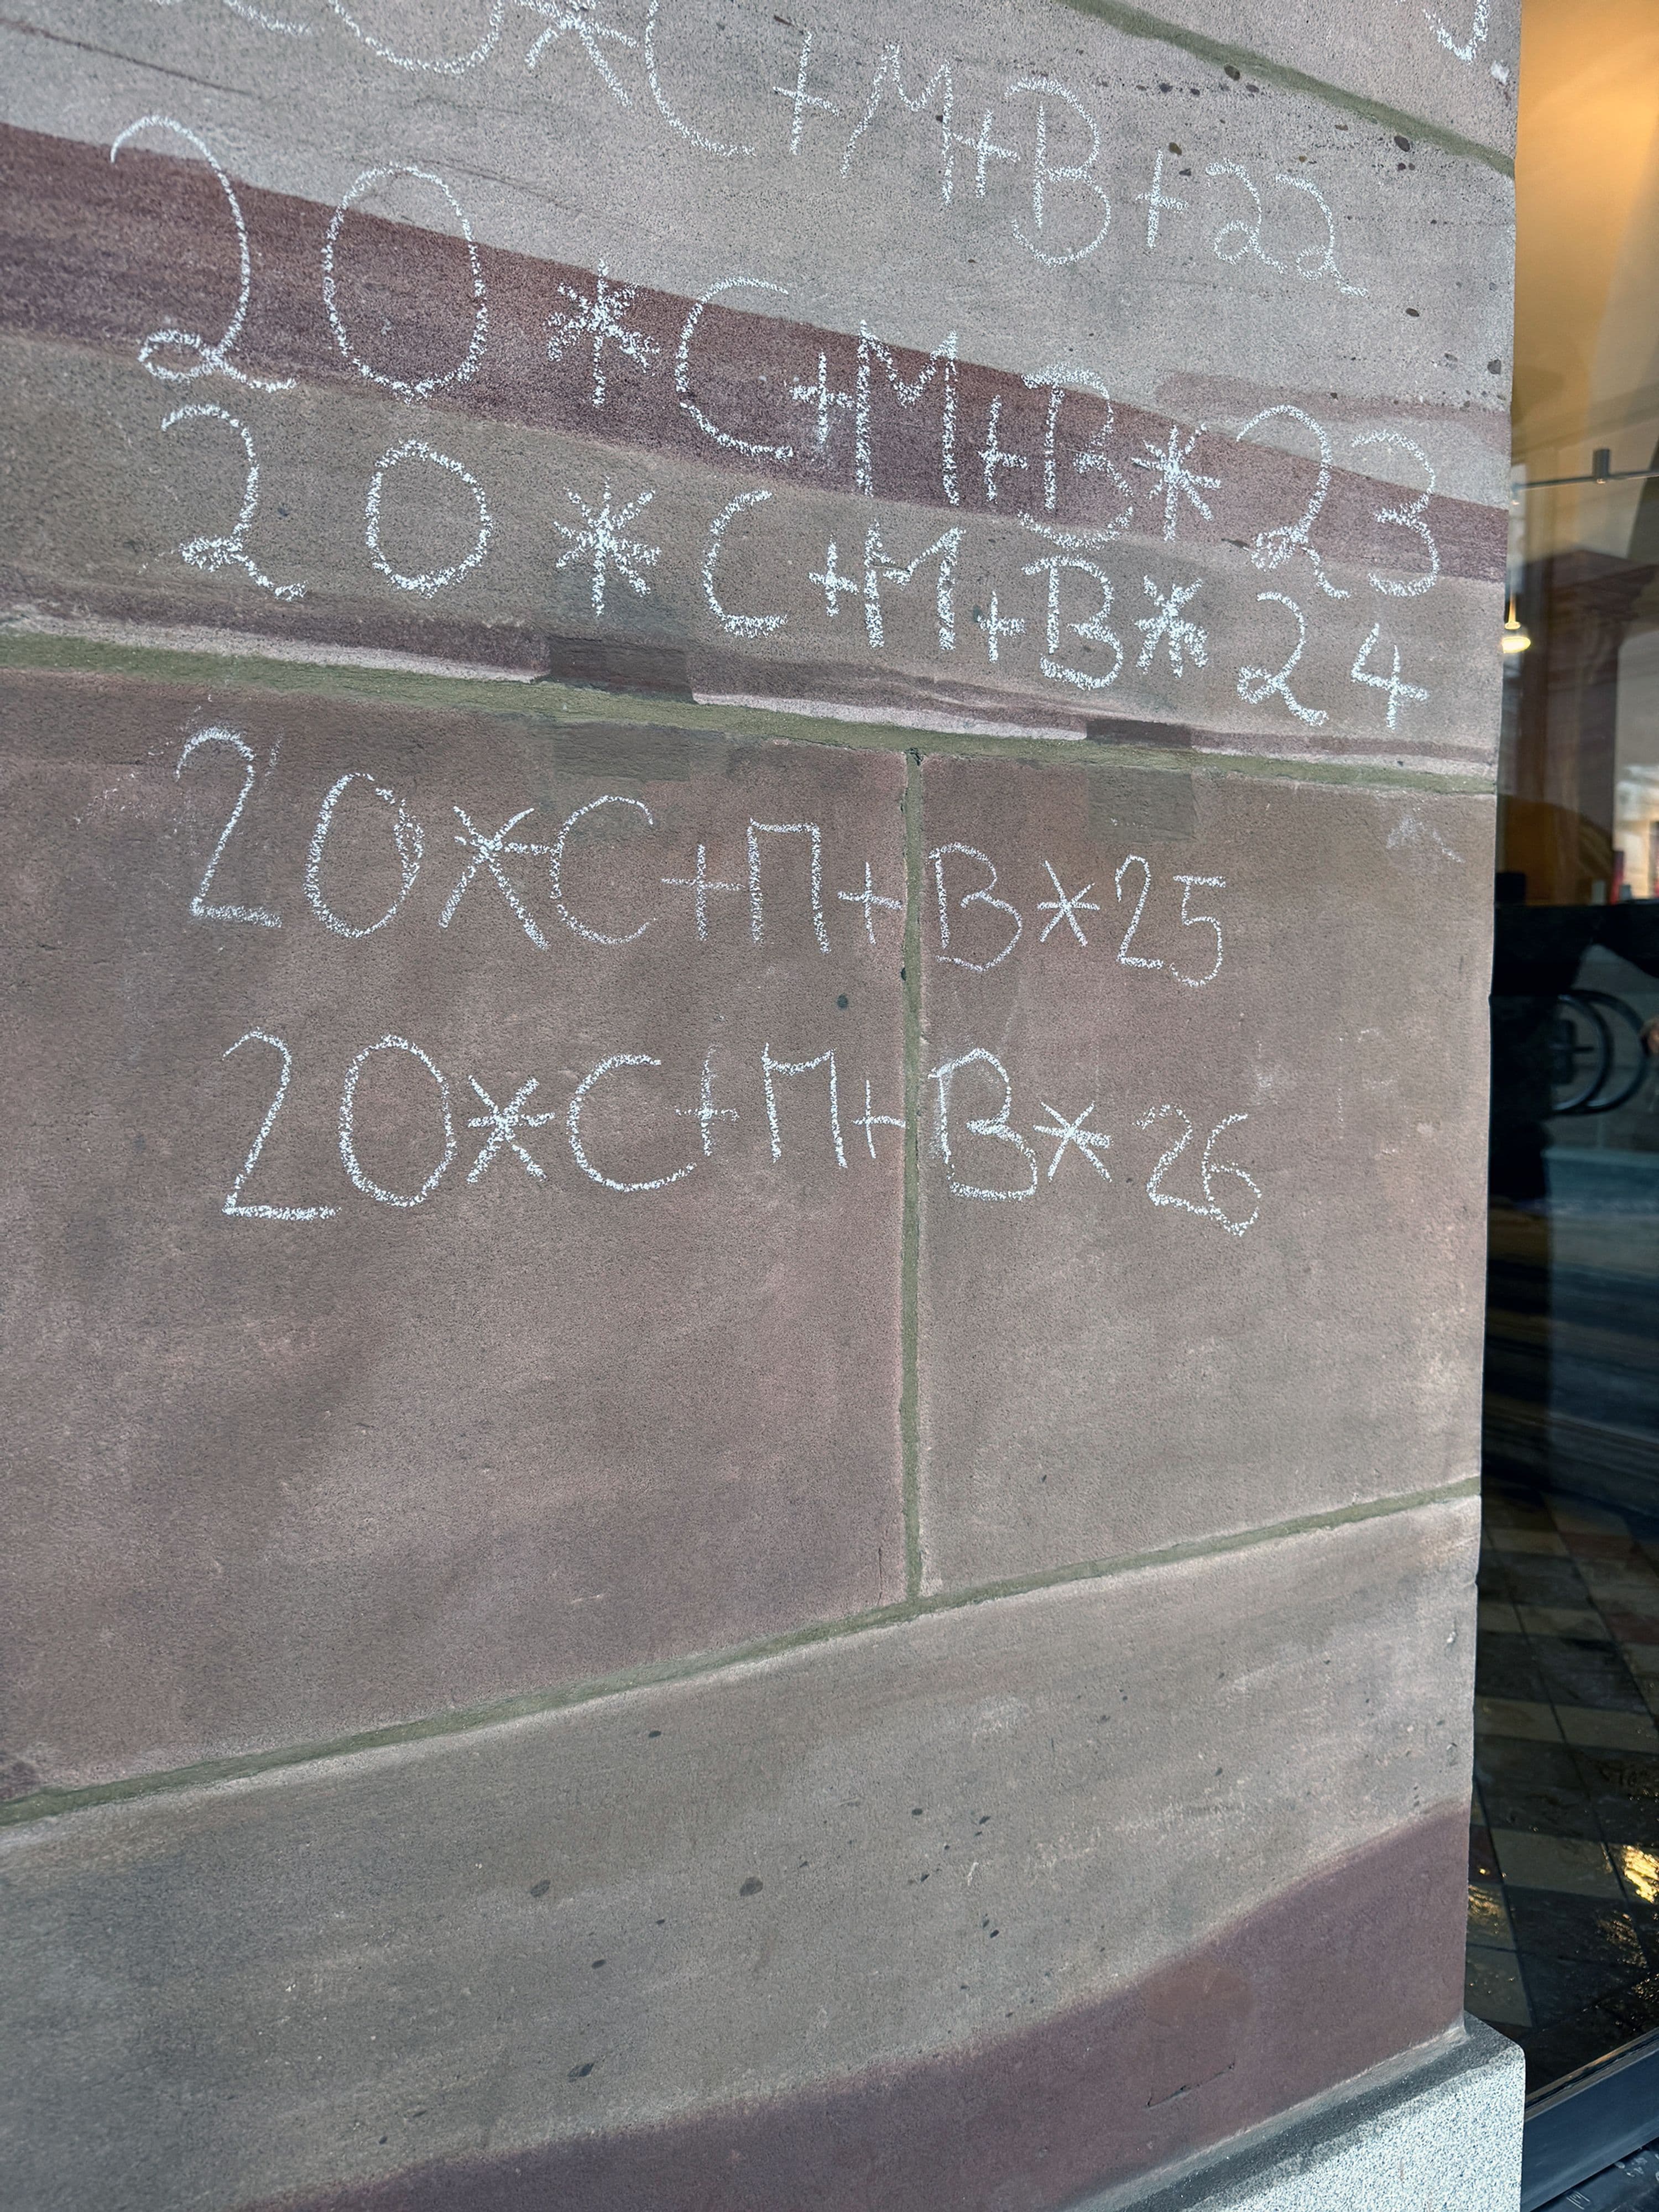 20*C+M+B+22
20*C+M+B*23
20*C+M+B*24
20*C+M+B*25
20*C+M+B*26